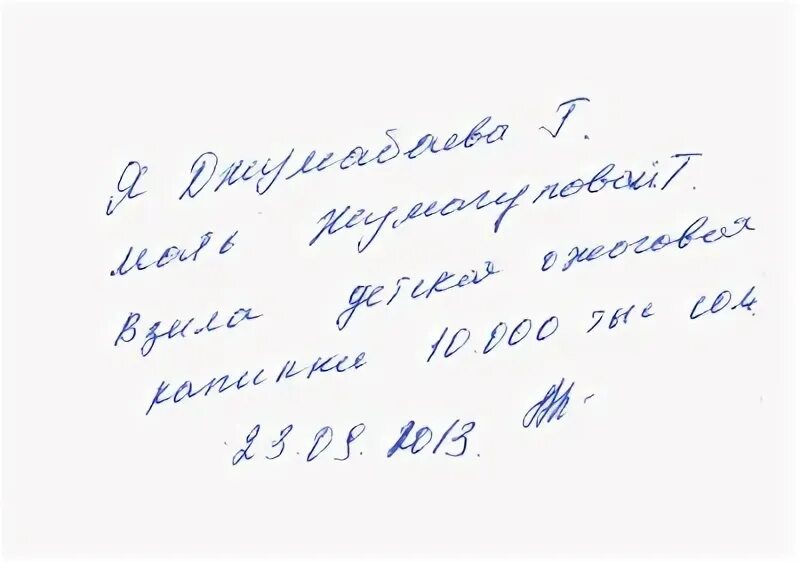 Я Джумабаева Т.
мать Жумагуловой Т.
взяла детская ожоговая
капилки 10.000 тыс сом.
23.09.2013.